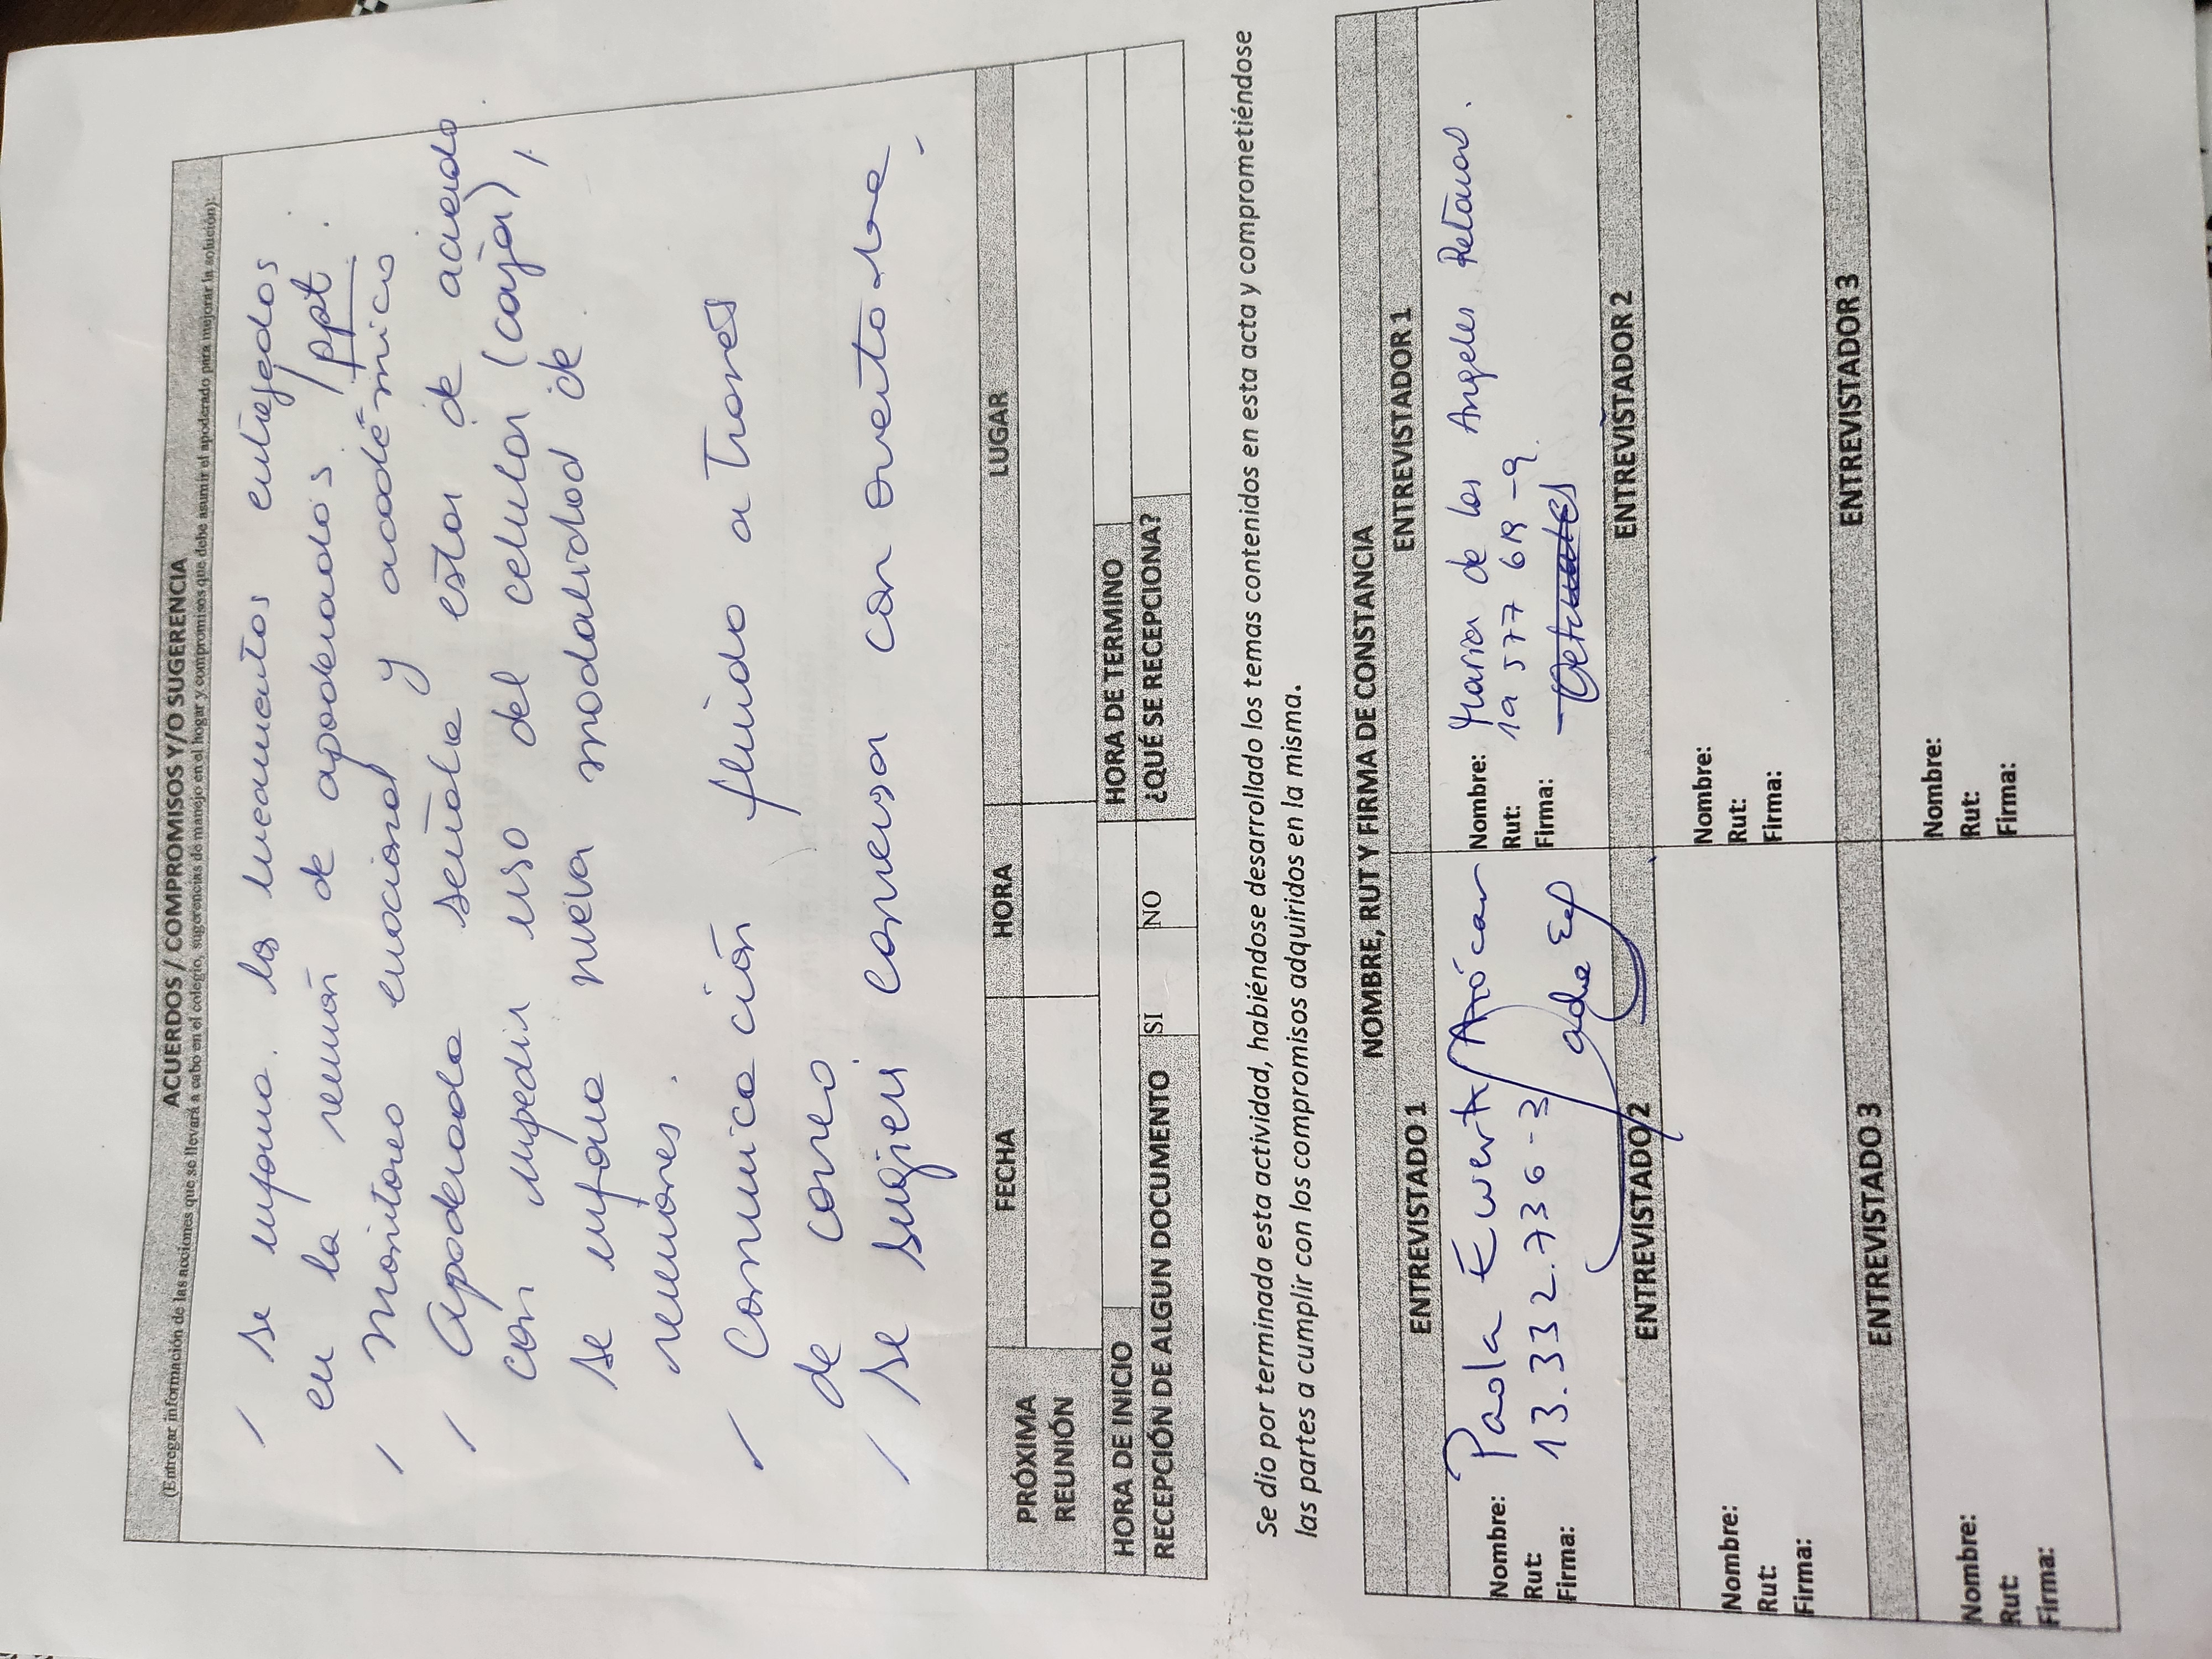 ACUERDOS / COMPROMISOS Y/O SUGERENCIA
(Entregar información de las acciones que se llevará a cabo en el colegio, sugerencias de manejo en el hogar y compromisos que debe asumir el apoderado para mejorar la solución):
/ se informa. los lineamientos entregados
en la reunión de apoderados /ppt.
/ Monitoreo emocional y académico
/ Apoderada señala estar de acuerdo
con impedir uso del celular (cajar),
se informa nueva modalidad de
reuniones.
/ Comunicación fluida a través
de correo
/ se sugieri conversar con orientadora
PRÓXIMA REUNIÓN FECHA HORA LUGAR
HORA DE INICIO HORA DE TERMINO
RECEPCIÓN DE ALGUN DOCUMENTO SI NO ¿QUÉ SE RECEPCIONA?
Se dio por terminada esta actividad, habiéndose desarrollado los temas contenidos en esta acta y comprometiéndose
las partes a cumplir con los compromisos adquiridos en la misma.
NOMBRE, RUT Y FIRMA DE CONSTANCIA
ENTREVISTADO 1 ENTREVISTADOR 1
Nombre: Paola Ewerta/Arócar Nombre: Maria de los Angeles Retamal.
Rut: 13.332.736-3 Rut: 19 577 619-9
Firma: Firma:
ENTREVISTADO 2 ENTREVISTADOR 2
Nombre: Nombre:
Rut: Rut:
Firma: Firma:
ENTREVISTADO 3 ENTREVISTADOR 3
Nombre: Nombre:
Rut: Rut:
Firma: Firma: